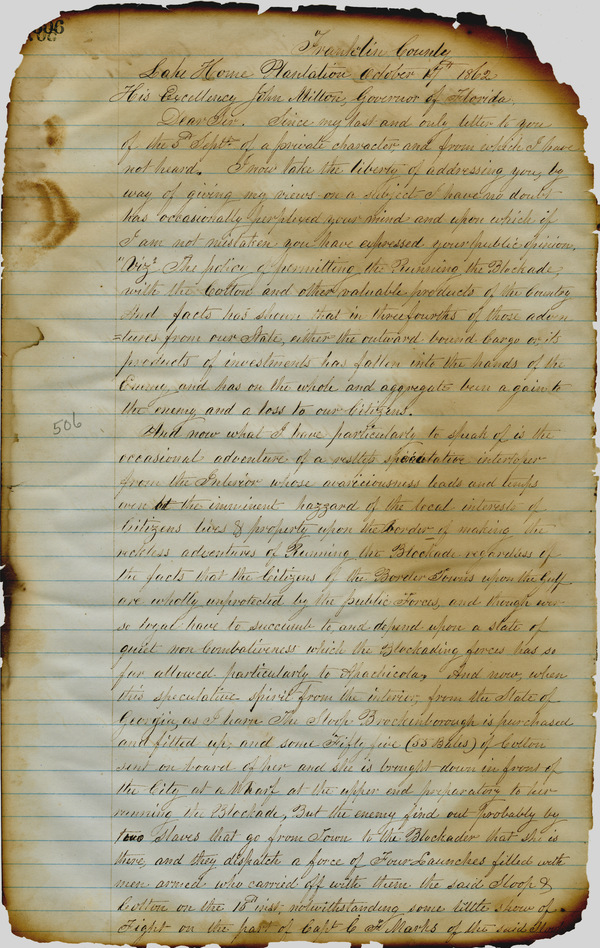 506
Franklin County
Lake Home Plantation October 17th 1862
His Excellency John Milton, Governor of Florida.
Dear Sir. Since my last and only letter to you
of the 5th Septr. of a private character and from which I have
not heard. I now take the liberty of addressing you, by
way of giving my views on a subject I have no doubt
has occasionally perplexed your mind and upon which if
I am not mistaken you have expressed your public opinion,
"Viz" The policy of permitting the Running the Blockade,
with the Cotton and other valuable products of the Country
And facts has shown that in threefourths of those adven
=tures from our State, either the outward bound Cargo or its
products of investments has fallen into the hands of the
Enemy, and has on the whole and aggregate been a gain to
the enemy and a loss to our Citizens.
506
And now what I have particularly to speak of is the
occasional adventure of a restless speculative interloper
from the Interior whose avariciousness leads and temps
even at the imminent hazzard of the local interests of
Citizens lives & property upon the border of making the
reckless adventures of Running the Blockade regardless of
the facts that the Citizens of the Border Towns upon the Gulf
are wholly unprotected by the public Forces, and though ever
so loyal have to succumb to, and depend upon a state of
quiet non Combativeness which the Blockading forces has so
far allowed particularly to Apachicola, And now, when
this speculative spirit from the interior, from the State of
Georgia, as I learn The Sloop Brockenborough is purchased
and fitted up, and some Fifty five (55 Bales) of Cotton
sent on board of her and she is brought down in front of
the City at a Wharf at the upper end preparatory to her
running the Blockade, But the enemy find out probably by
two Slaves that go from Town to the Blockader that she is
there, and they dispatch a force of Four Launches filled with
men armed who carried off with them the said Sloop &
Cotton on the 15th inst, notwithstanding some little show of
Fight on the part of Capt C Marks of the said